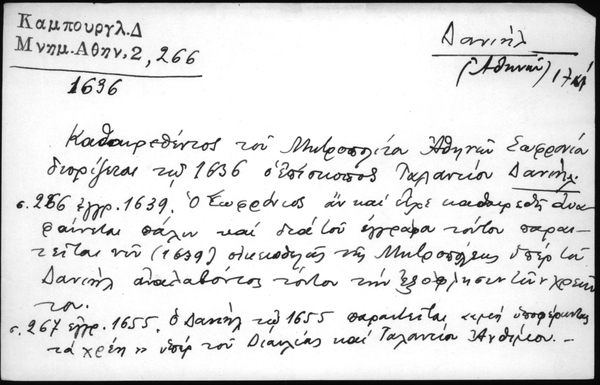 Καμπουργλ.Δ
Μνημ.Αθην.2,266
1636
Δανιήλ
(Ἀθηνῶν) 17
Καθαιρεθέντος τοῦ Μητροπολίτα Ἀθηνῶν Σωφρονίου
διορίζεται τῷ 1636 ὁ ἐπίσκοπος Ταλαντίου Δανιήλ.
σ.266 ἔγγρ.1639, Ὁ Σωφρόνιος ἂν καὶ εἶχε καθαιρεθῆ ἀνα-
φαίνεται πάλιν καὶ διὰ τοῦ ἐγγράφου τούτου παραι-
τεῖται νῦν (1639) οἰκειοθελῶς τῆς Μητροπόλεως ὑπὲρ τοῦ
Δανιήλ ἀναλαβόντος τούτου τὴν ἐξόφλησιν τῶν χρεῶν
του.
σ.267 ἔγγρ.1655. ὁ Δανιήλ τῷ 1655 παραιτεῖται «μὴ ὑποφέροντας
τὰ χρέη» ὑπὲρ τοῦ Διαυλίας καὶ Ταλαντίου Ἀνθίμου. –